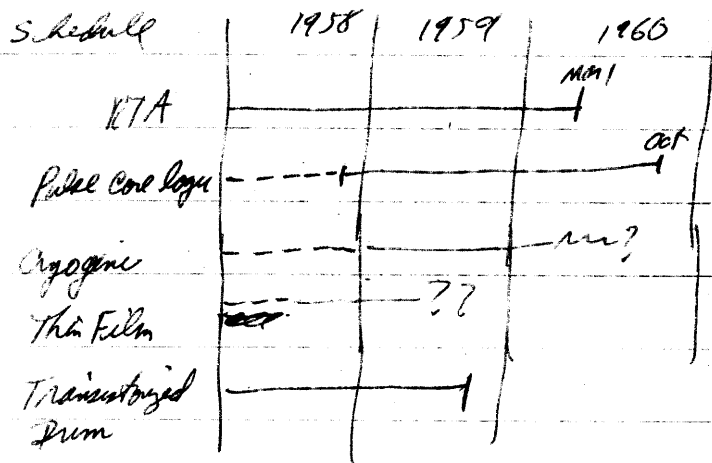 Schedule 1958 1959 1960
Mar 1
Oct
Pulse Core logic
Cryogenic ?
Thin Film ??
Transistorized
Drum